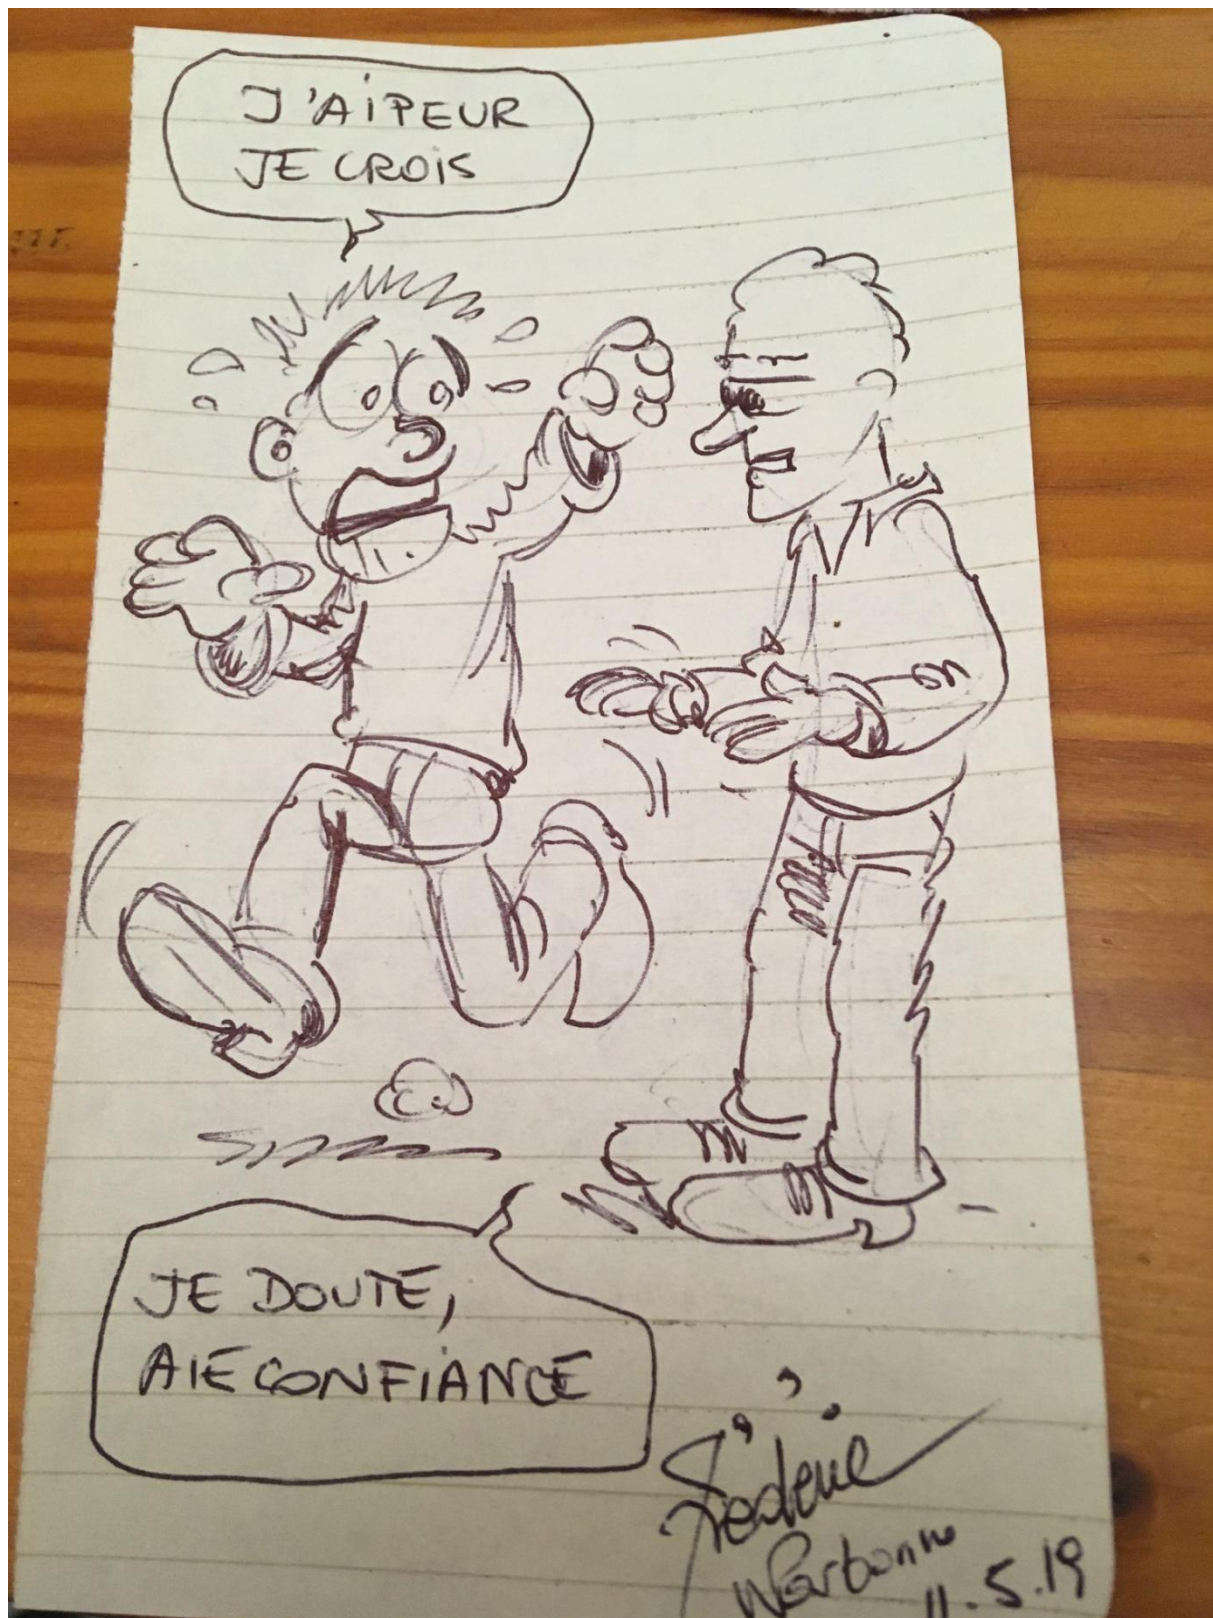 J'AI PEUR
JE CROIS
JE DOUTE,
AIE CONFIANCE
Frédéric
Narbonne
11.5.19